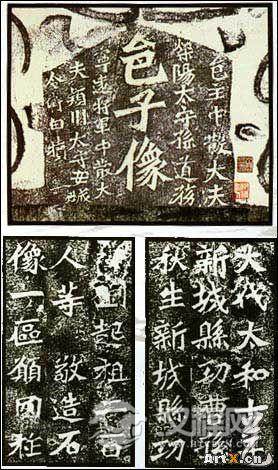 邑主中散大夫
滎陽太守孫道務
邑子像
寧遠將軍中散大
夫潁川太守安城
令衛白犢
大代太和七年
新城縣功曹孫
秋生新城縣功
劉起祖二百
人等敬造石
像一區願國祚
Artx.cn